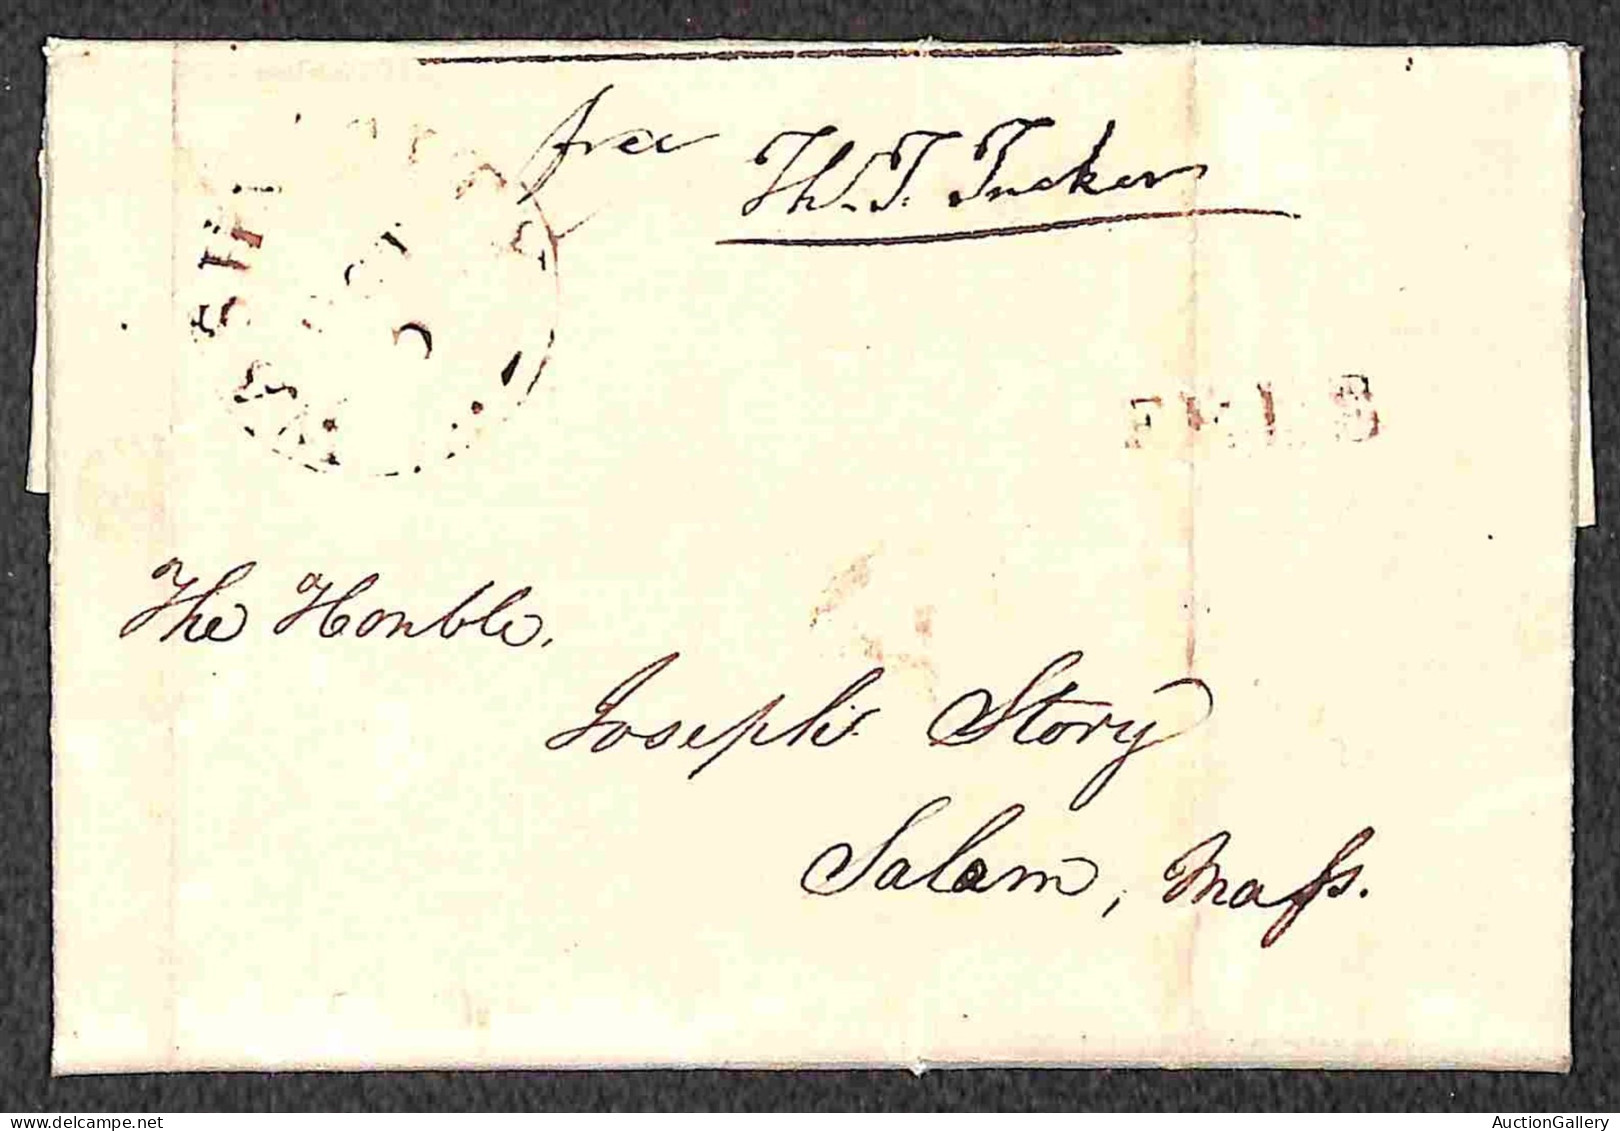 free Th. T. Tucker
WASHI
OCT
5
FREE
The Honble.
Joseph Story
Salem, Mass.
AuctionGallery